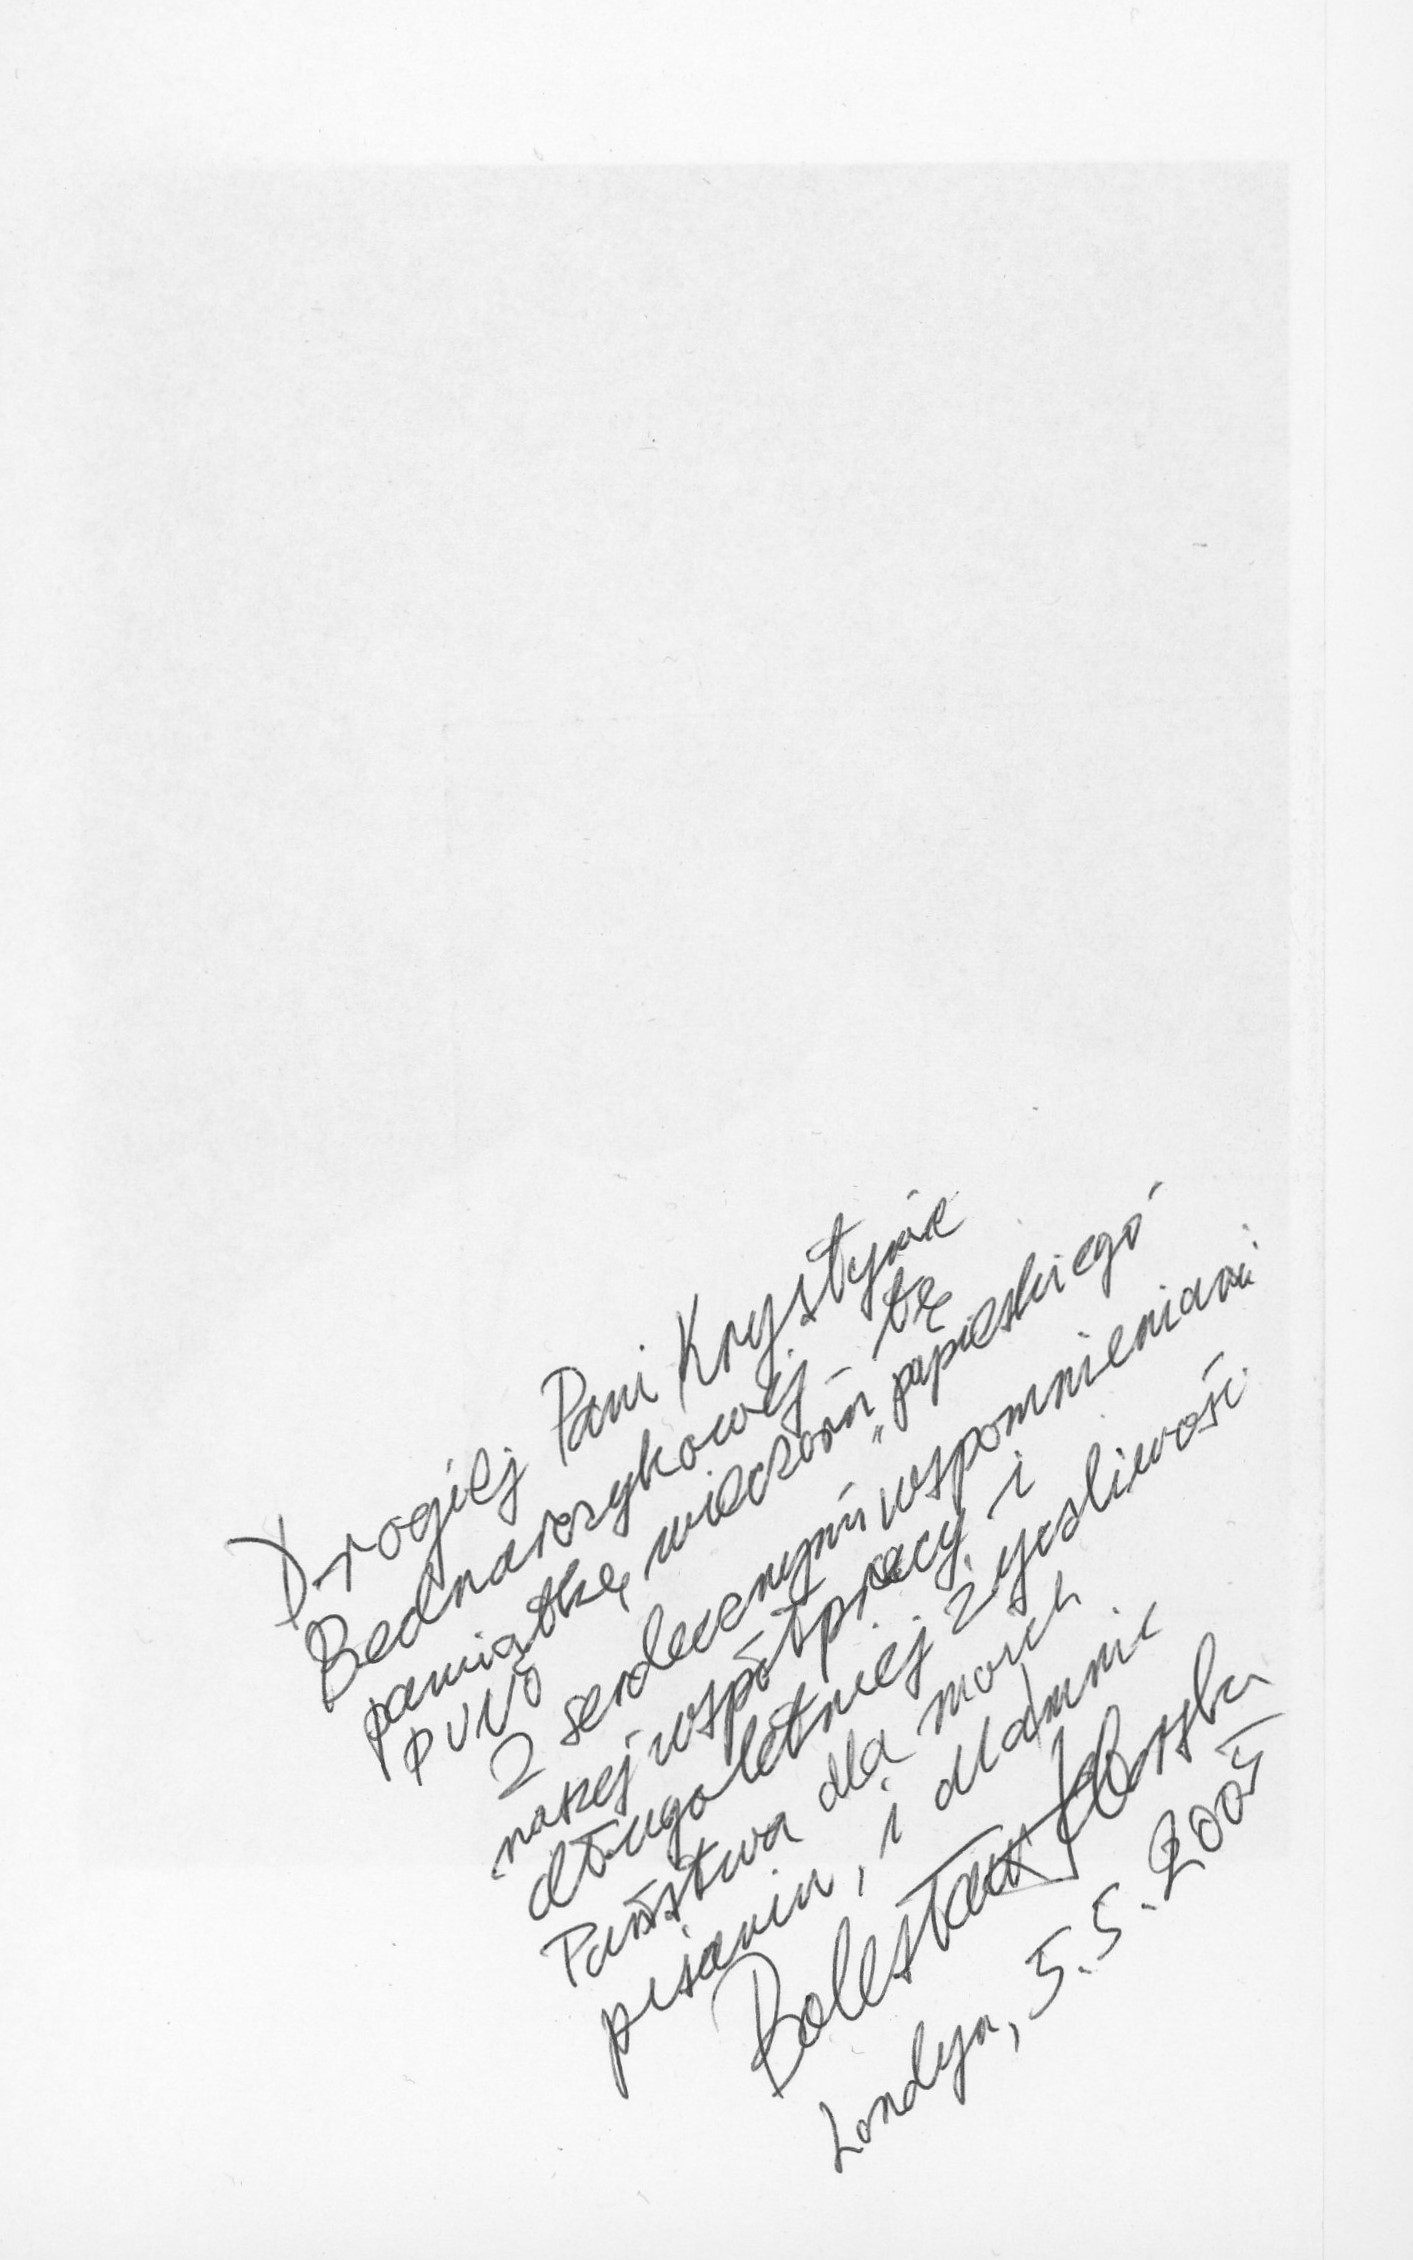 Drogiej Pani Krystynie
Bednarczykowej – tę
pamiątkę wieczoru „papieskiego"
PUNO
Z serdecznymi wspomnieniami
naszej współpracy i
długoletniej życzliwości
Państwa dla moich
pisania, i dla mnie
Bolesław
Londyn, 5.5.2005